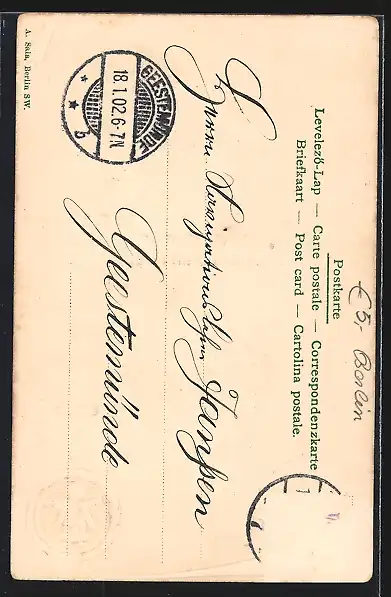 Postkarte
Levelező-Lap — Carte postale — Correspondenzkarte
Briefkaart — Post card — Cartolina postale.
Herrn
Janßen
Geestemünde
GEESTEMÜNDE
18.1.02.6-7N
b
A. Sala, Berlin SW.
€ 5,- Berlin
1